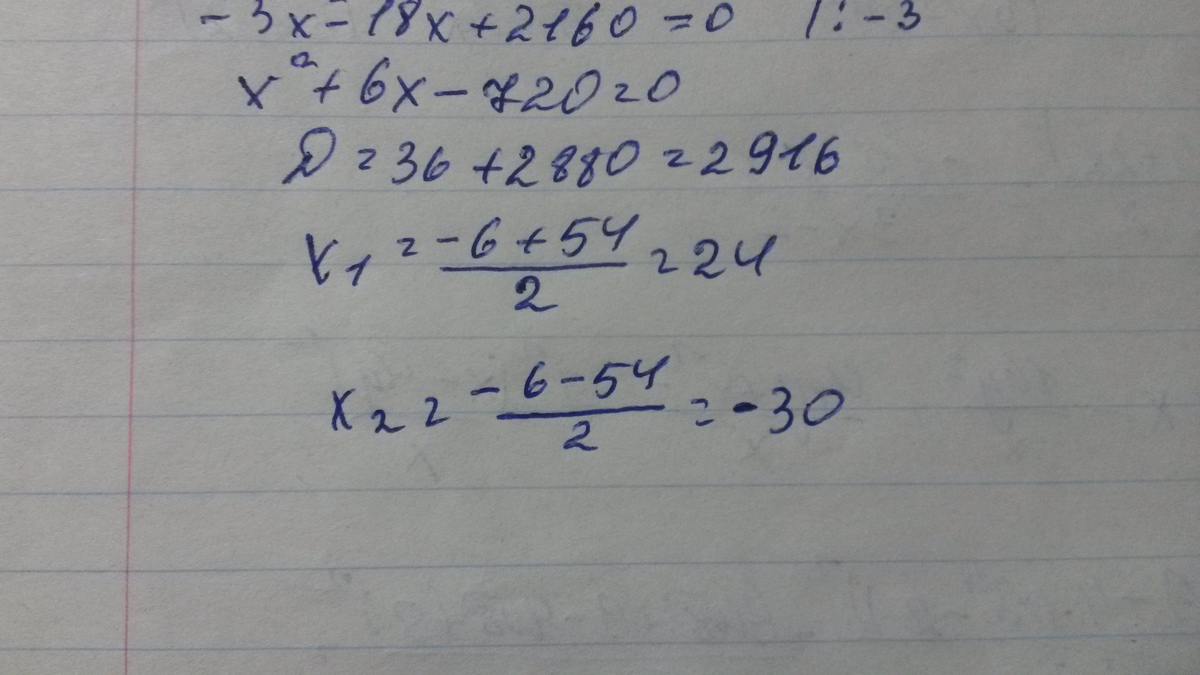 -3x²-18x+2160=0 |:-3
x²+6x-720=0
D=36+2880=2916
x₁=(-6+54)/2=24
x₂=(-6-54)/2=-30